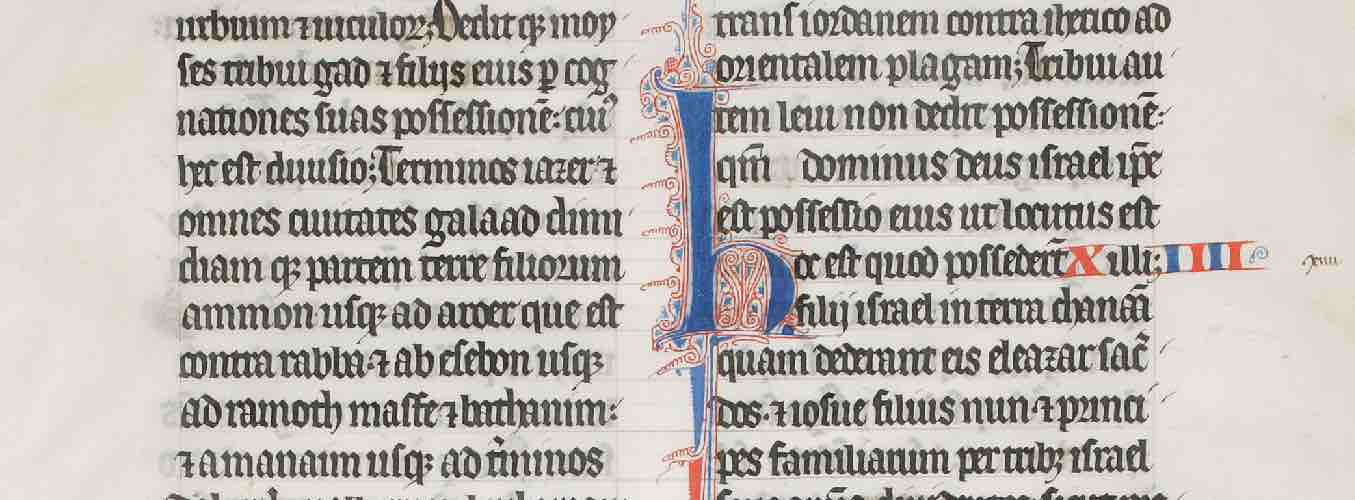 urbium ⁊ uiculoꝝ; Dedit qꝫ moy
ses tribui gad ⁊ filijs eius ꝑ cog
nationes suas possessionē: cui᷒
hec est diuisio; Terminos iazer ⁊
omnes ciuitates galaad dimi
diam qꝫ partem terre filiorum
ammon usqꝫ ad aroer que est
contra rabba· ⁊ ab esebon usqꝫ
ad ramoth masfe ⁊ bathanim:
⁊ a manaim usqꝫ ad t̉minos
trans iordanem contra iherico ad
orientalem plagam; Tribui au
tem leui non dedit possessionē:
qm̄ dominus deus israel ip̄e
est possessio eius ut locutus est
hec est quod possederūt X illi; IIII
xiiii
filij israel in terra chanaā
quam dederunt eis eleazar sac̄
dos· ⁊ iosue filius nun· ⁊ princi
pes familiarum per tribꝫ israel